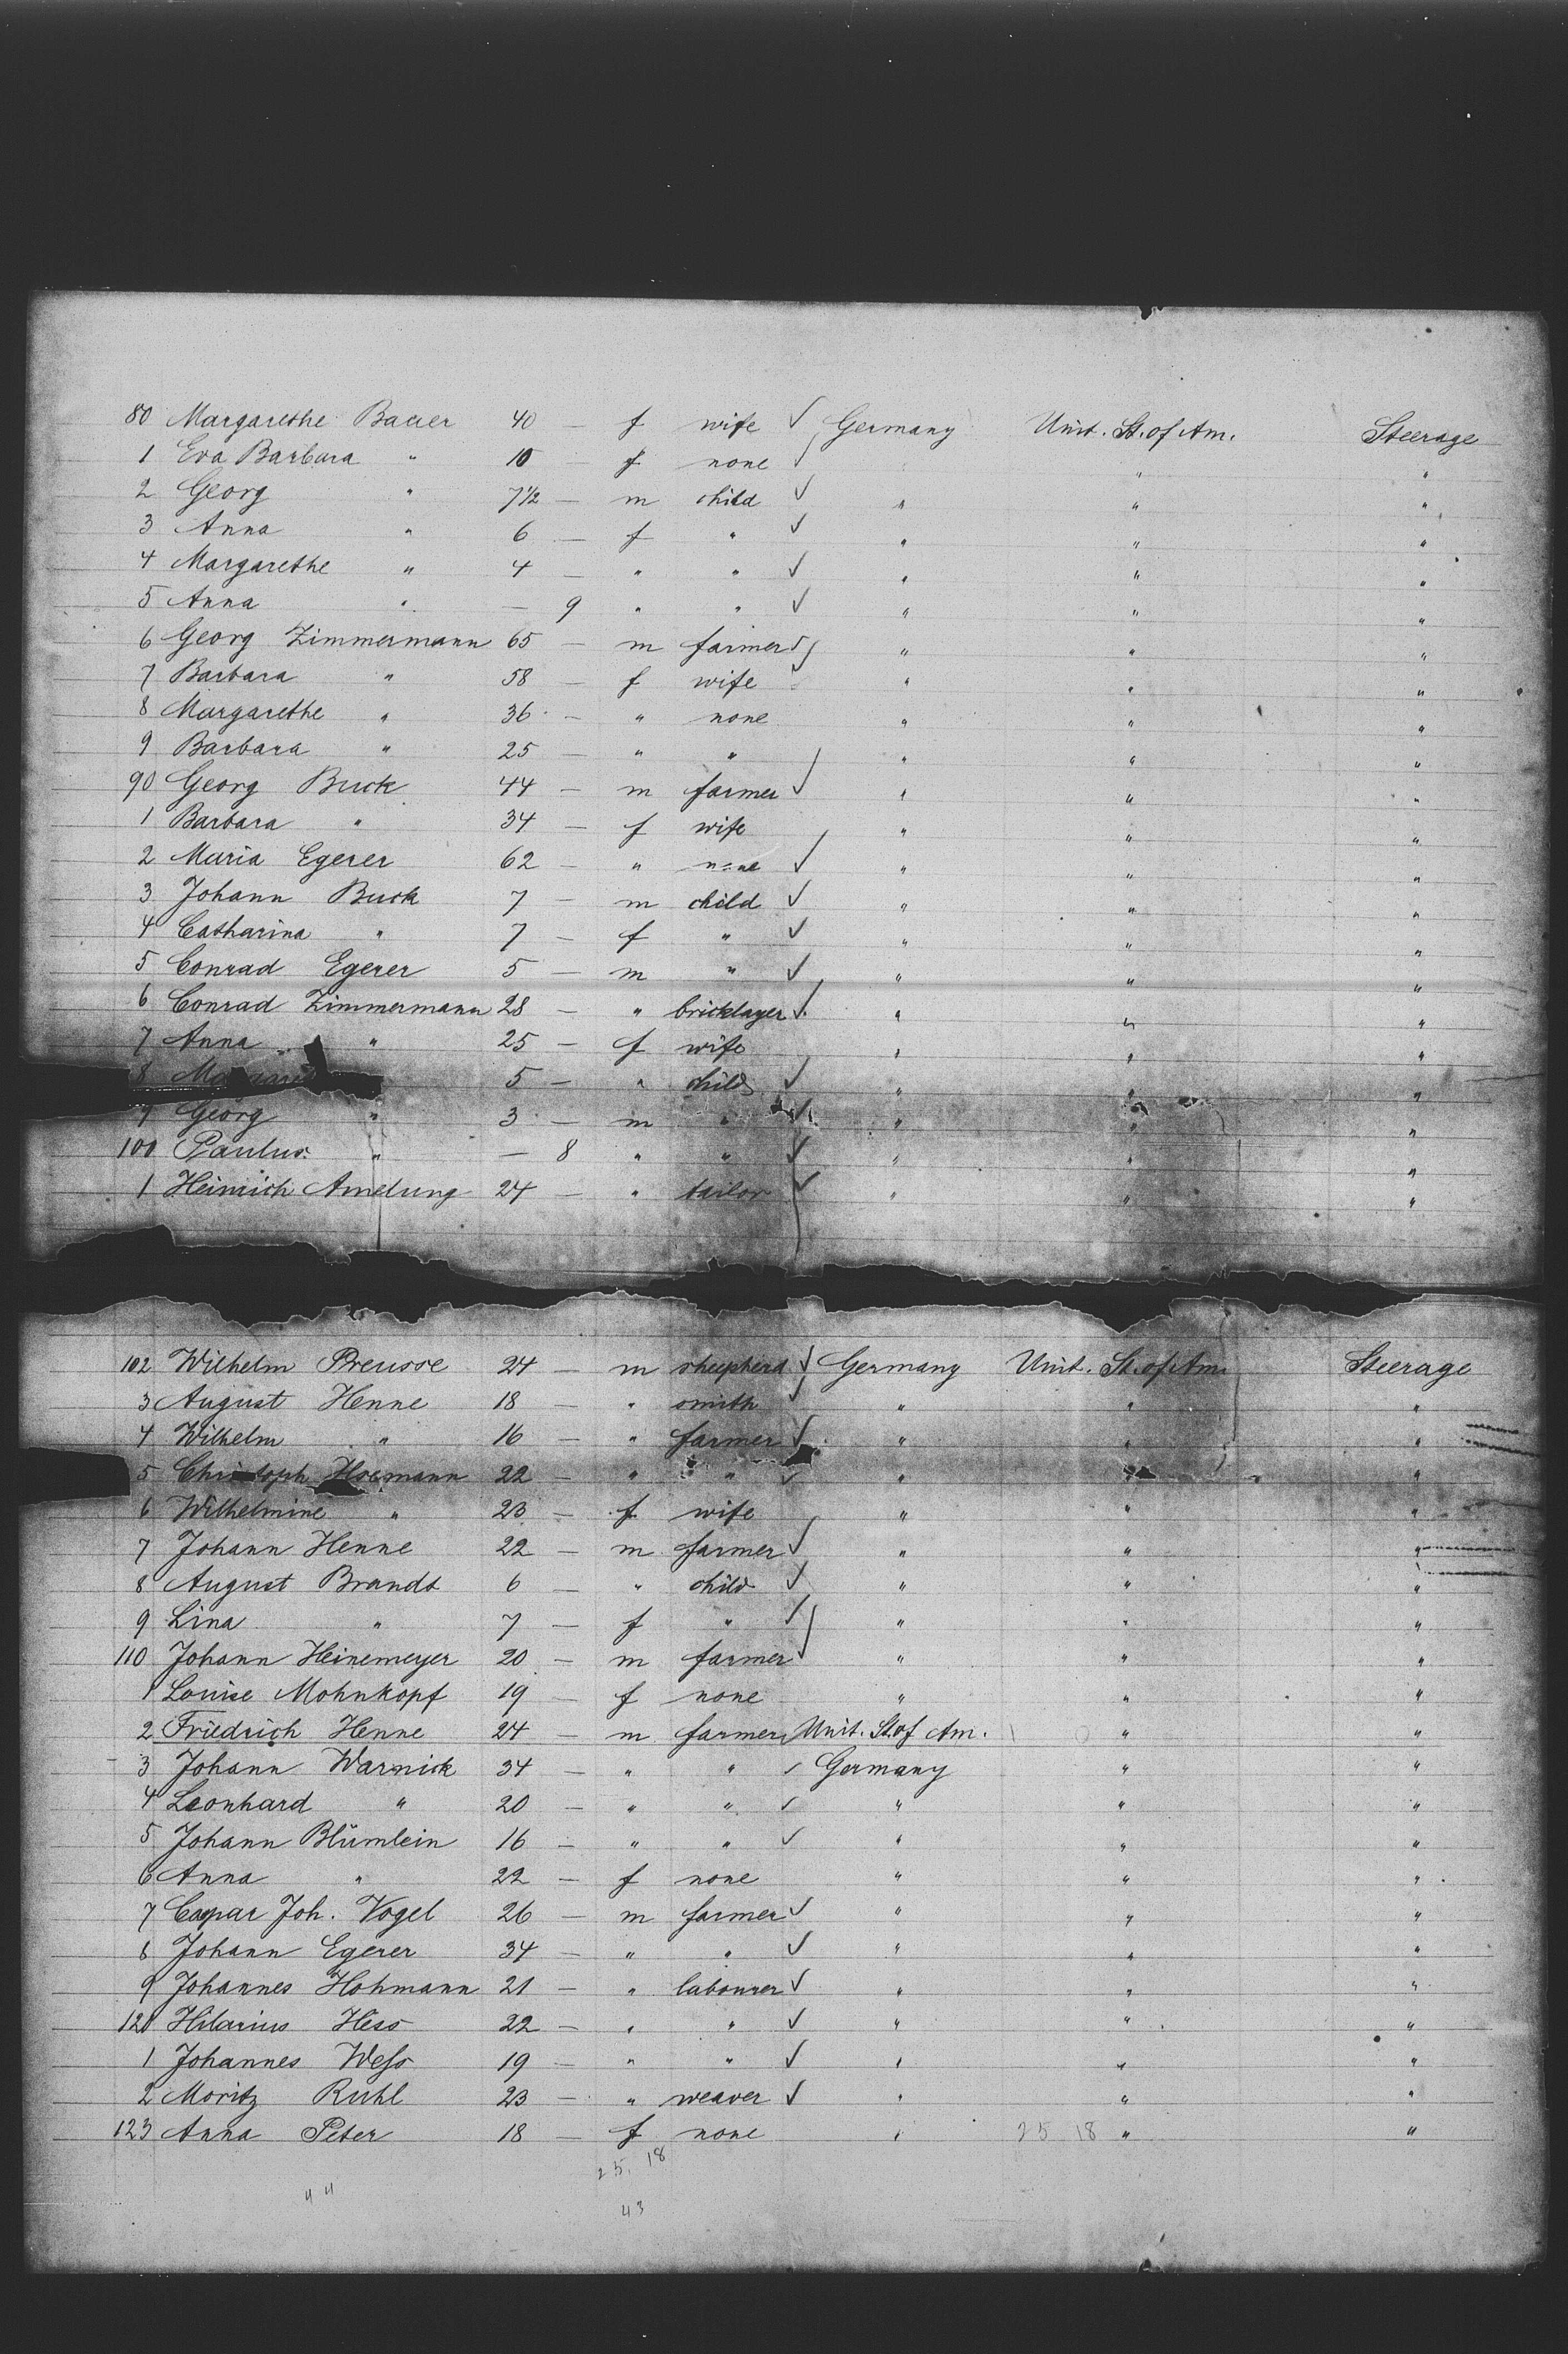 80 Margarethe Bauer 40 — f wife ✓ Germany Unit. St. of Am. Steerage
1 Eva Barbara " 10 — f none ✓ " " "
2 Georg " 7 1/2 — m child ✓ " " "
3 Anna " 6 — f " ✓ " " "
4 Margarethe " 4 — " " ✓ " " "
5 Anna " — 9 " " ✓ " " "
6 Georg Zimmermann 65 — m farmer ✓ " " "
7 Barbara " 58 — f wife " " "
8 Margarethe " 36 — " none " " "
9 Barbara " 25 — " " " " "
90 Georg Buck 44 — m farmer ✓ " " "
1 Barbara " 34 — f wife " " "
2 Maria Egerer 62 — " none ✓ " " "
3 Johann Buck 7 — m child ✓ " " "
4 Catharina " 7 — f " ✓ " " "
5 Conrad Egerer 5 — m " ✓ " " "
6 Conrad Zimmermann 28 — " bricklayer ✓ " " "
7 Anna " 25 — f wife " " "
8 5 — " child ✓ " " "
9 Georg " 3 — m " ✓ " " "
100 Paulus " — 8 " " ✓ " " "
1 Heinrich Amelung 24 — " tailor ✓ " " "
102 Wilhelm Preusse 24 — m sheepherd ✓ Germany Unit. St. of Am. Steerage
3 August Henne 18 — " smith ✓ " " "
4 Wilhelm " 16 — " farmer ✓ " " "
5 Christoph 22 — " " ✓ " " "
6 Wilhelmine " 23 — f wife " " "
7 Johann Henne 22 — m farmer ✓ " " "
8 August Brandt 6 — " child ✓ " " "
9 Lina " 7 — f " ✓ " " "
110 Johann Heinemeyer 20 — m farmer ✓ " " "
1 Louise Mohnkopf 19 — f none " " "
2 Friedrich Henne 24 — m farmer Unit. St. of Am. " "
3 Johann Warnick 34 — " " ✓ Germany " "
4 Leonhard " 20 — " " ✓ " " "
5 Johann Blümlein 16 — " " ✓ " " "
6 Anna " 22 — f none " " "
7 Caspar Joh. Vogel 26 — m farmer ✓ " " "
8 Johann Egerer 34 — " " ✓ " " "
9 Johannes Hohmann 21 — " labourer ✓ " " "
120 Hilarius Hess 22 — " " ✓ " " "
1 Johannes Wess 19 — " " ✓ " " "
2 Moritz Ruhl 23 — " weaver ✓ " " "
123 Anna Peter 18 — f none " 25 18 " "
25. 18
44
43